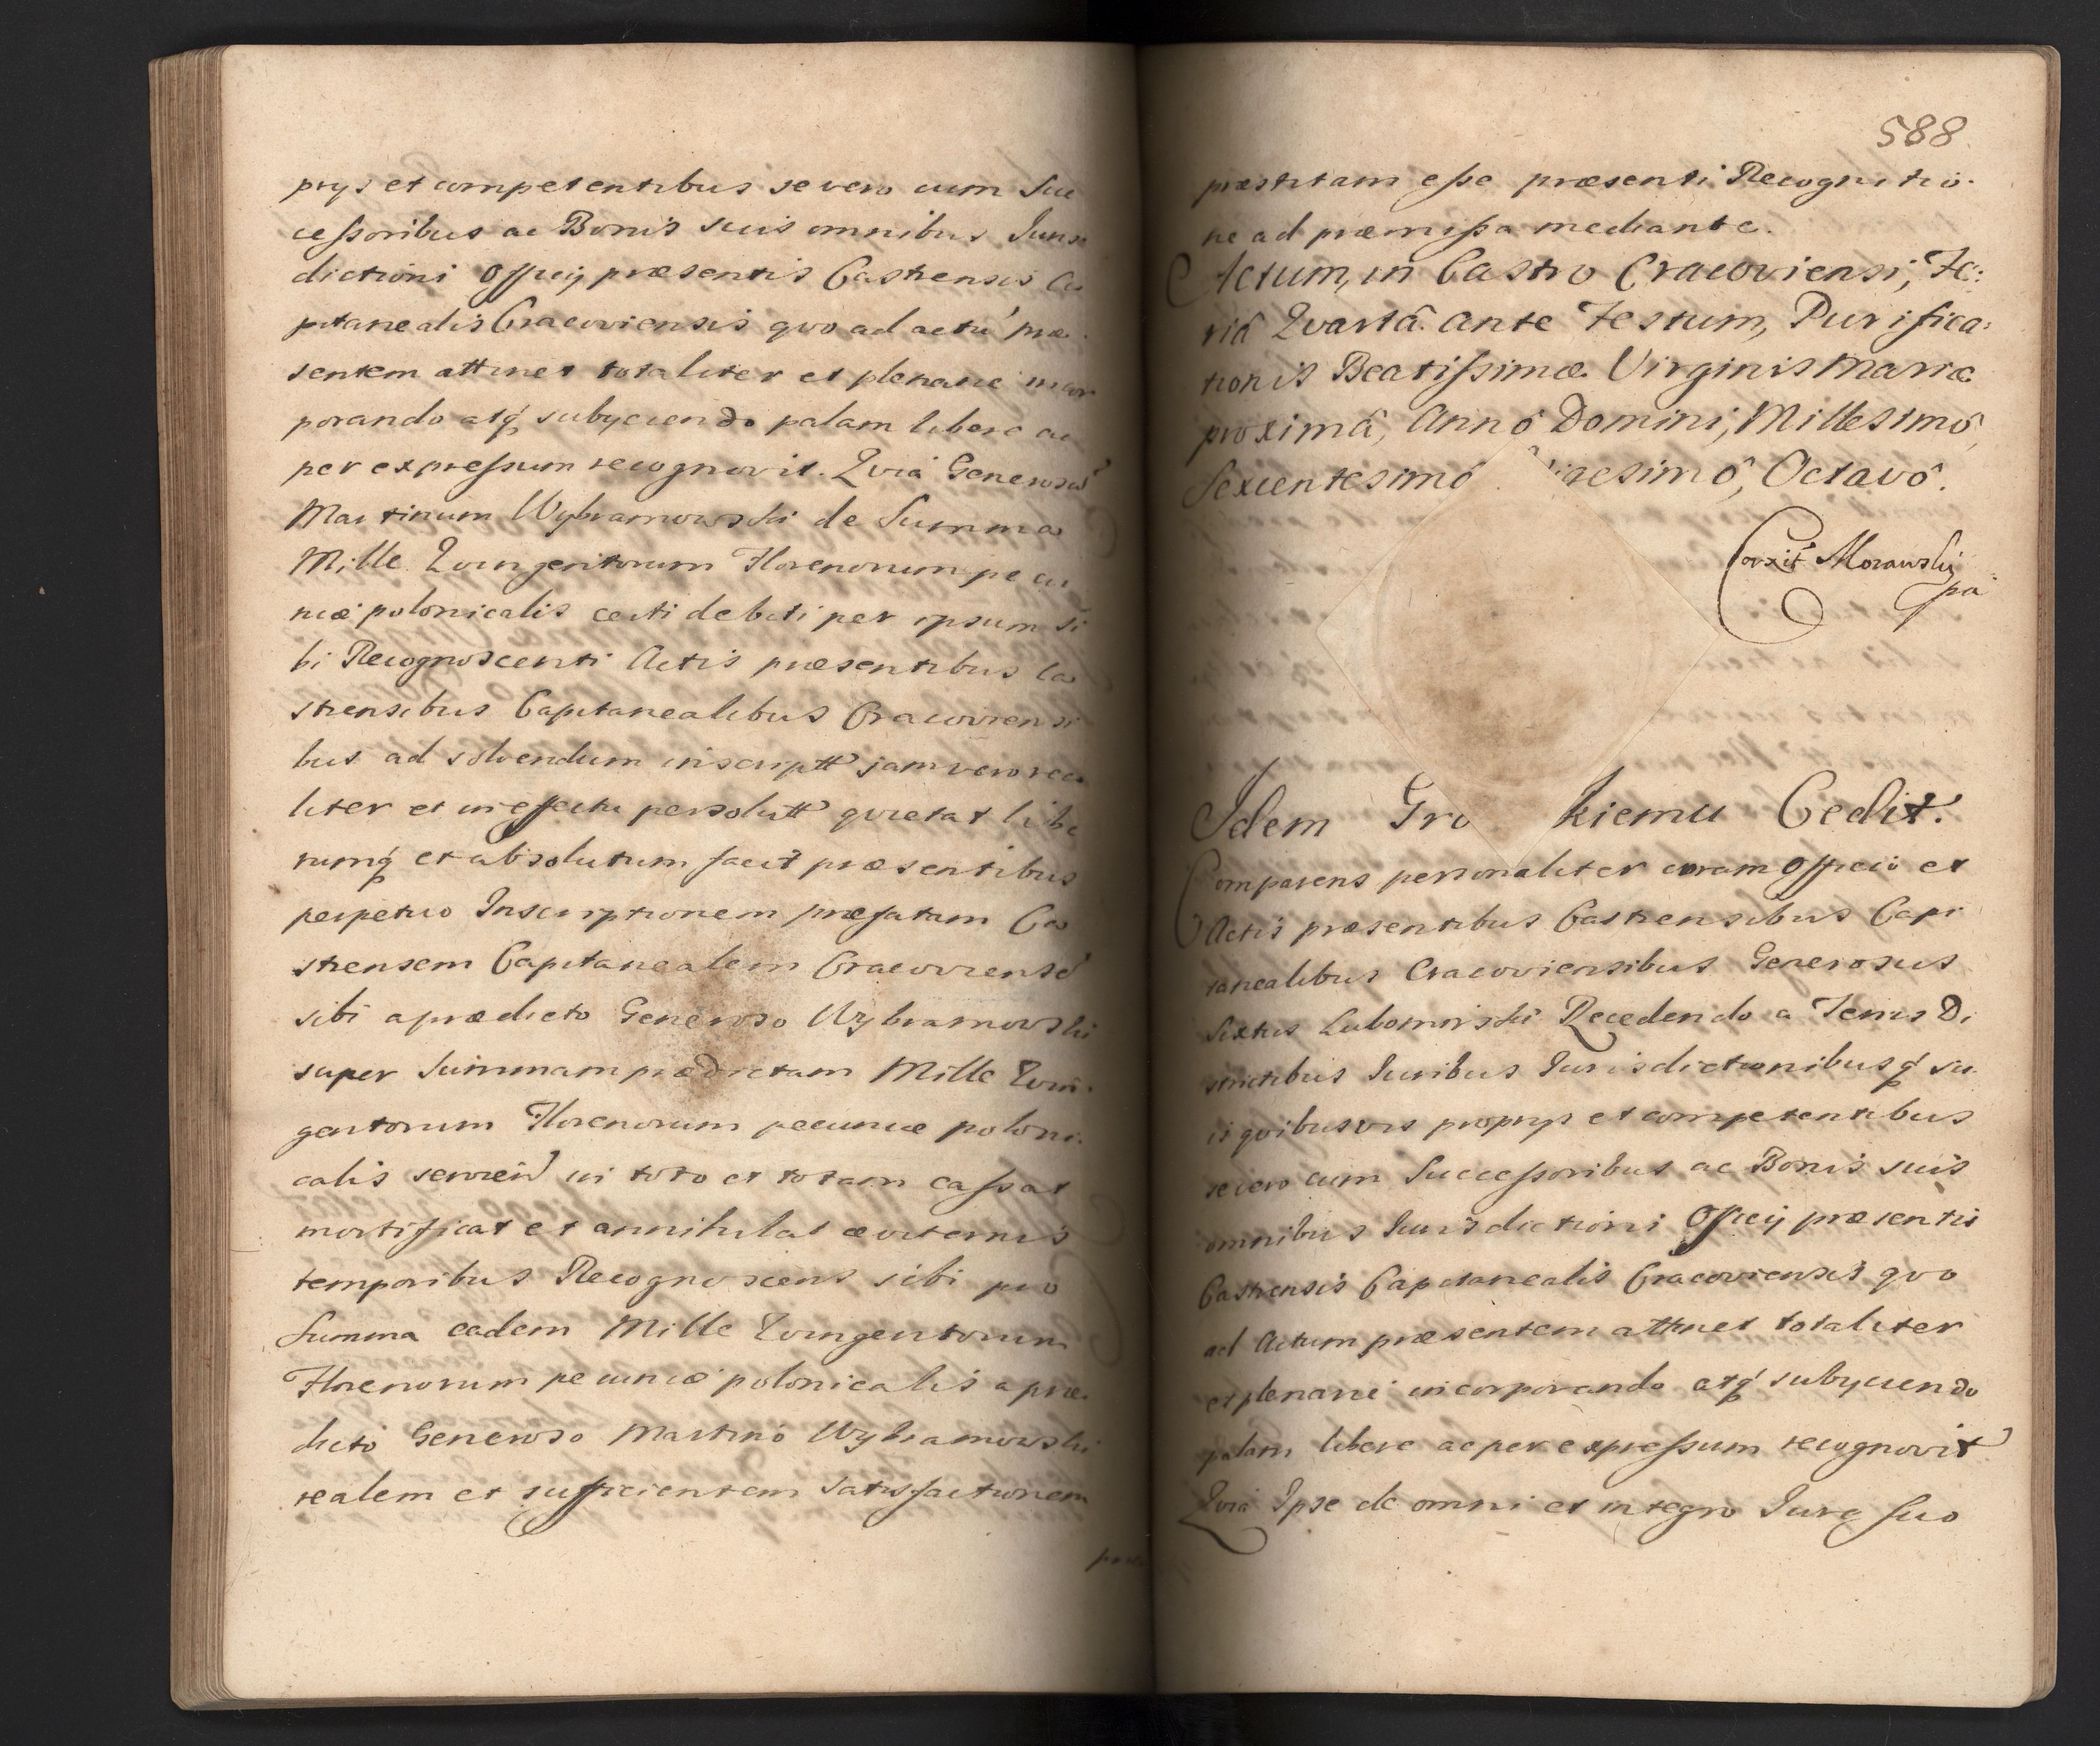 prys et competentibus se vero cum Suc
cessoribus ac Bonis suis omnibus Juris
dictioni Officij præsentis Castrensis Ca
pitanealis Cracoviensis qvo ad actū præ
sentem attinet totaliter et plenarie incor
porando atq subyciendo palam libere ac
per expressum recognovit. Qvia Generosū
Martinum Wybramowski de Summa
Mille Qvingentorum Florenorum pecu
niæ polonicalis certi debiti per ipsum si
bi Recognoscenti Actis præsentibus Ca
strensibus Capitanealibus Cracoviensi
bus ad solvendum inscriptt jam vero rea
liter et in effectu persolutt qvietat libe
rumq et absolutum facit præsentibus
perpetuo Inscriptionem præfatam Ca
strensem Capitanealem Cracoviensē
sibi a prædicto Generoso Wybramowski
super Summam prædictam Mille Qvin
gentorum Florenorum pecuniæ poloni
calis servien in toto et totam cassat
mortificat et annihilat æviternis
temporibus Recognoscens sibi pro
Summa eadem Mille Qvingentorum
Florenorum pecuniæ polonicalis a præ
dicto Generoso Martino Wybramowski
realem et sufficientem satisfactionem
588
præstitam esse præsenti Recognitio-
ne ad præmissa mediante.
Actum, in Castro Cracoviensi, Fe:
riâ Qvartâ ante Festum, Purifica:
tionis Beatissimæ Virginis Mariæ
proximâ, Annô Domini, Millesimô
Sexcentesimô gesimô, Octavô.
Corxit Morawskj
pa
Idem Gro kiemu Cedit.
Comparens personaliter coram Officio et
Actis præsentibus Castrensibus Capi
tanealibus Cracoviensibus Generosus
Sixtus Lubomirski Recedendo a Terris Di
strictibus Juribus Jurisdictionibusq su
is qvibusvis proprys et competentibus
se vero cum Successoribus ac Bonis suis
omnibus Jurisdictioni Officij præsentis
Castrensis Capitanealis Cracoviensis qvo
ad Actum præsentem attinet totaliter
et plenarie incorporando atq subyciendo
palam libere ac per expressum recognovit
Qvia Ipse de omni et integro Jure suo